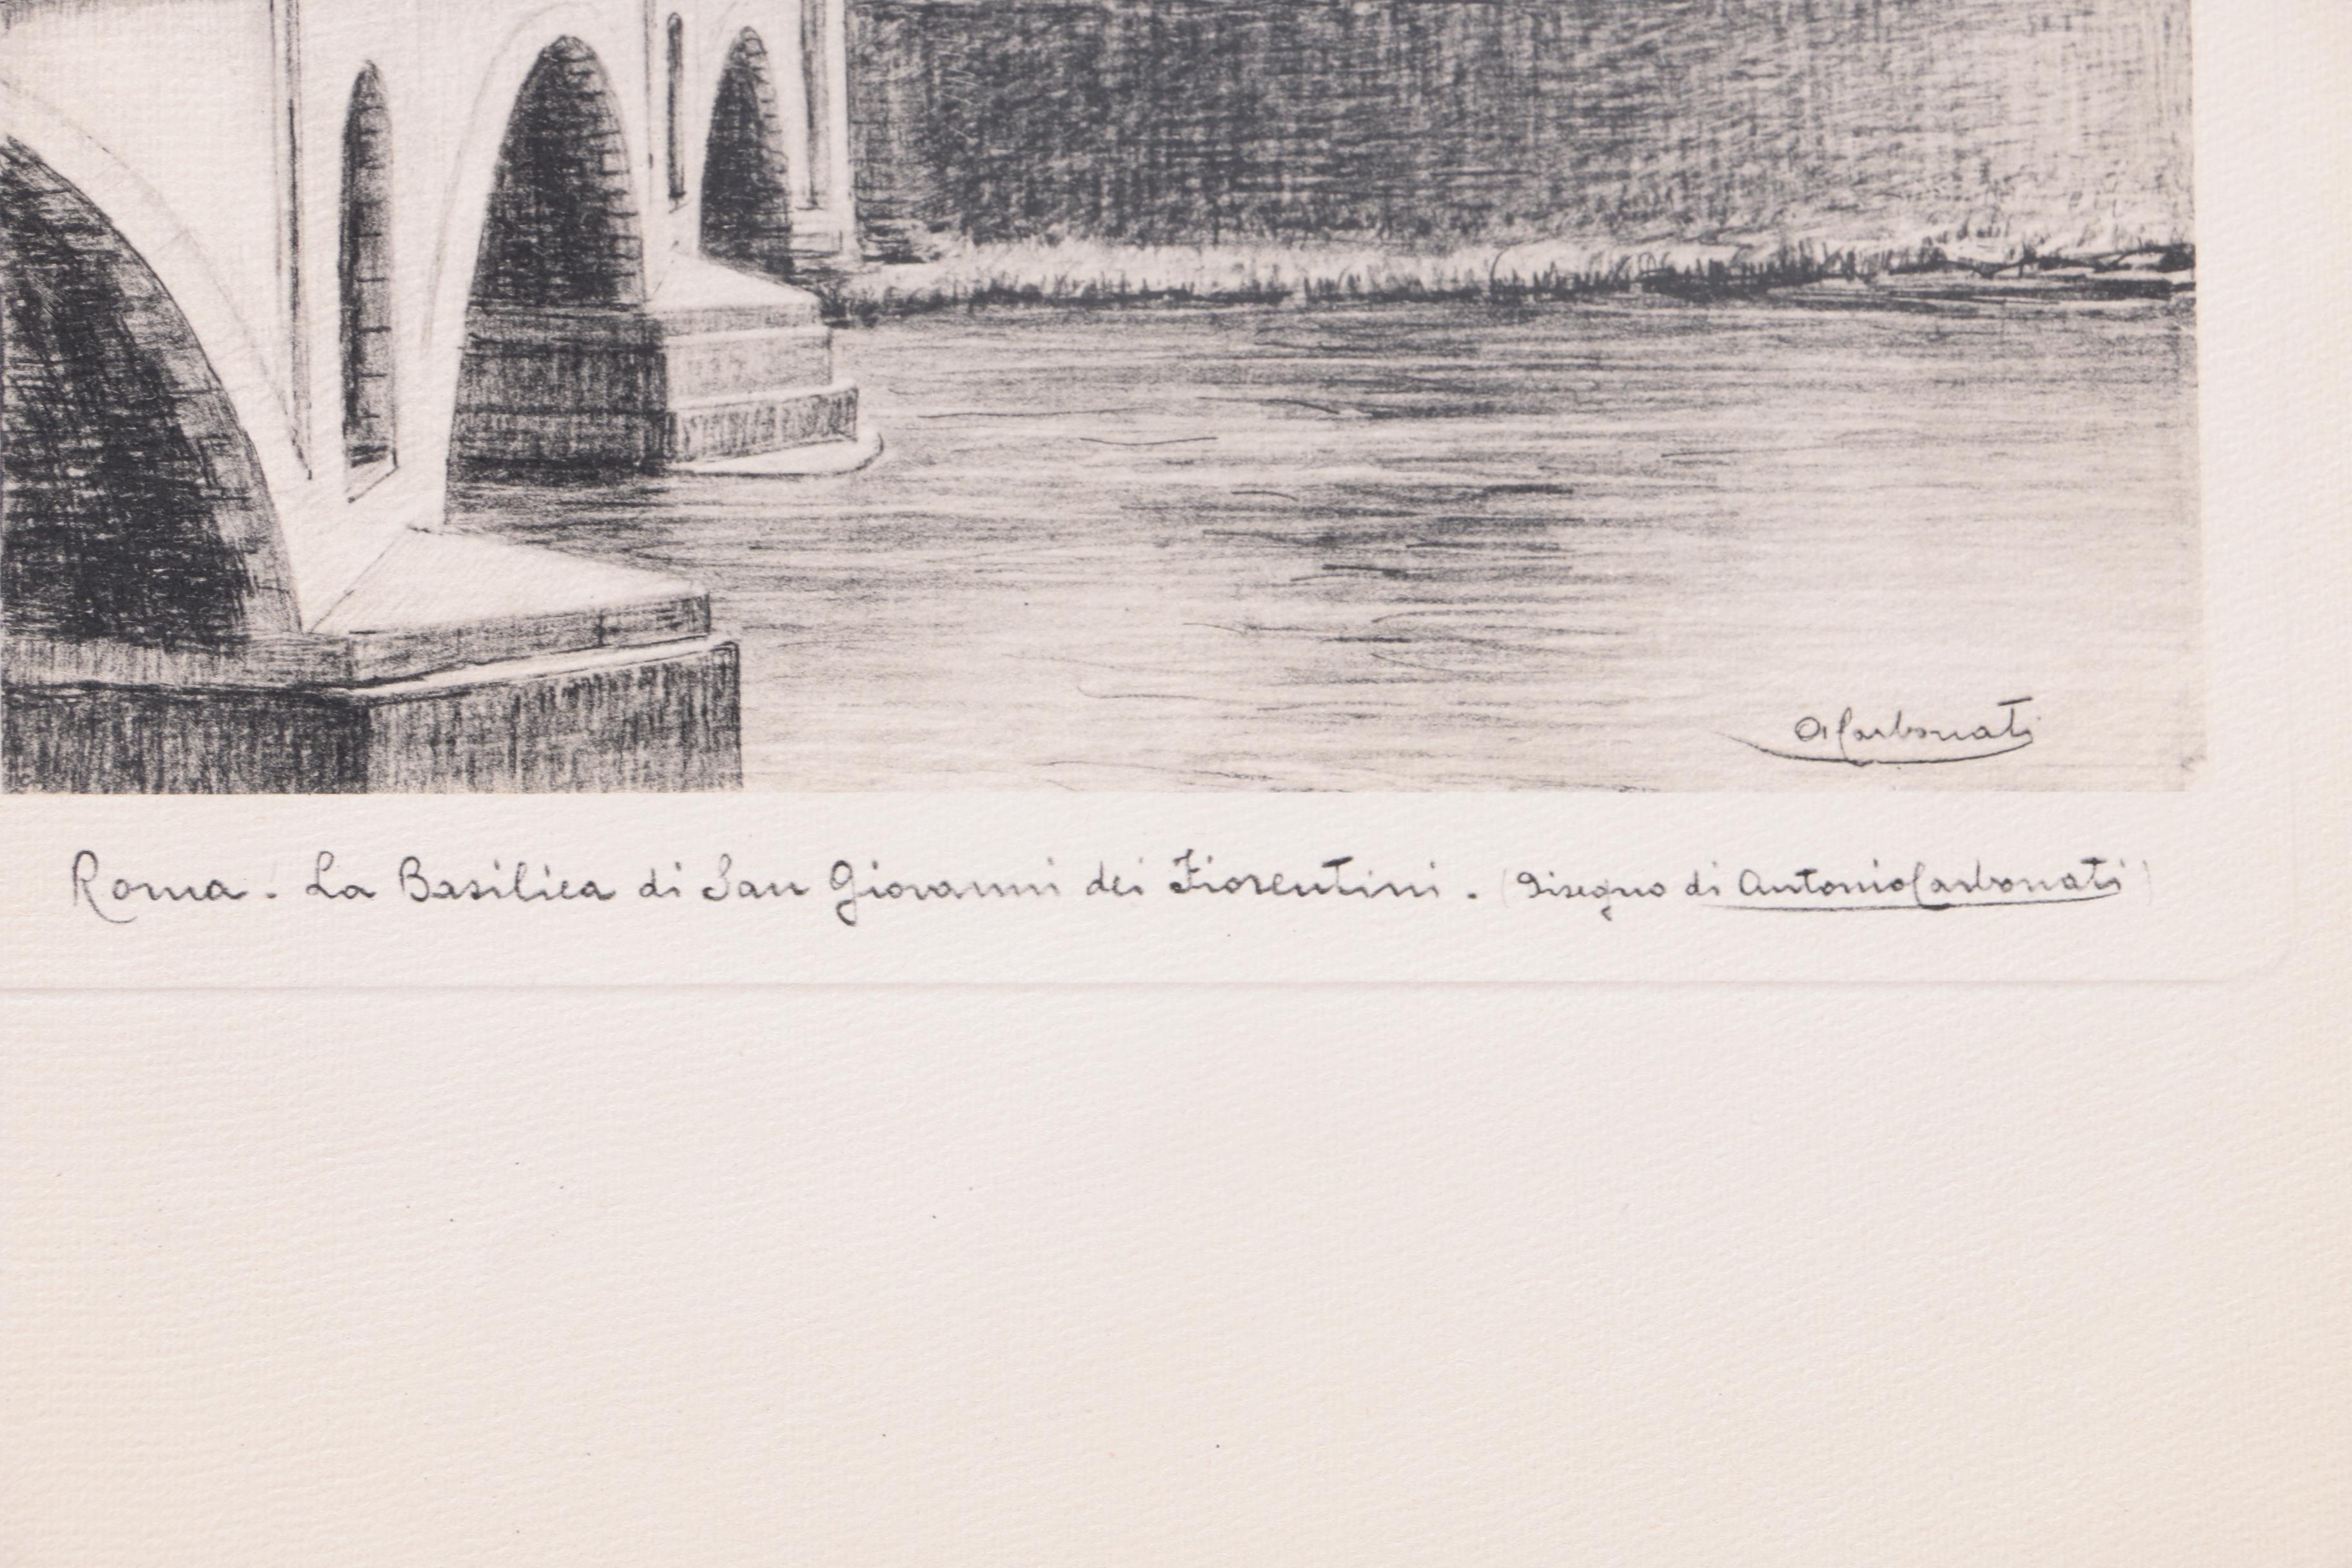 A Carbonati
Roma. La Basilica di San Giovanni dei Fiorentini. (Disegno di Antonio Carbonati)